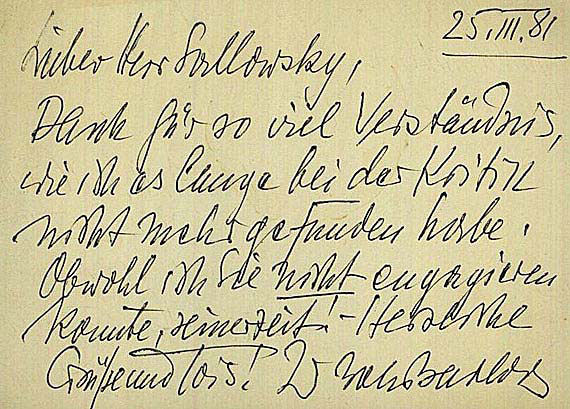 25.III.81
Lieber Herr Sallowsky,
Dank für so viel Verständnis,
wie ich es lange bei der Kritik
nicht mehr gefunden habe.
Obwohl ich Sie nicht engagieren
konnte, seinerzeit! - Herzliche
Grüße und